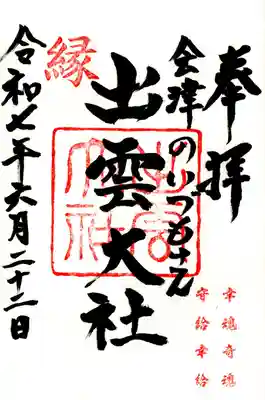 奉拝
会津のいづもさん
出雲大社
縁
令和七年六月二十二日
幸魂奇魂
守給幸給
出雲大社